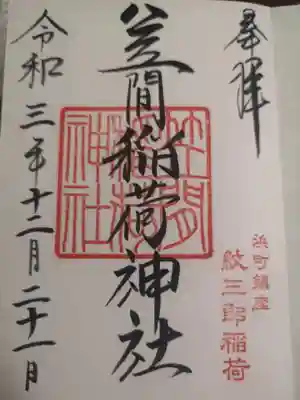 奉拝
浜町鎮座
紋三郎稲荷
笠間稲荷神社
笠間稲荷神社
令和三年十二月二十一日